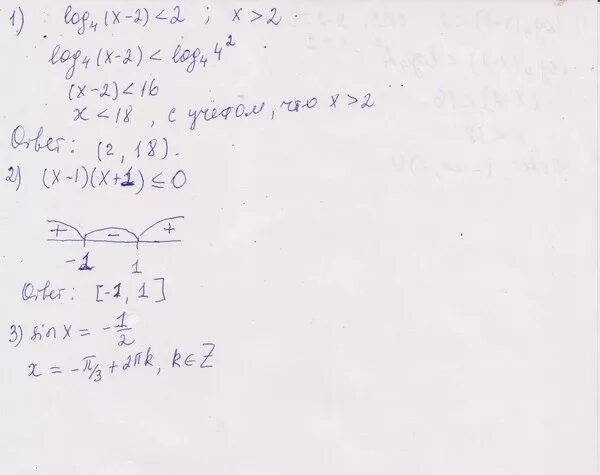 1) log₄(x-2) < 2 ; x > 2
log₄(x-2) < log₄4²
(x-2) < 16
x < 18, с учётом, что x > 2
Ответ: (2, 18).
2) (x-1)(x+1) ≤ 0
+ - +
-1 1
Ответ: [-1, 1]
3) sin x = -1/2
x = -π/3 + 2πk, k∈Z